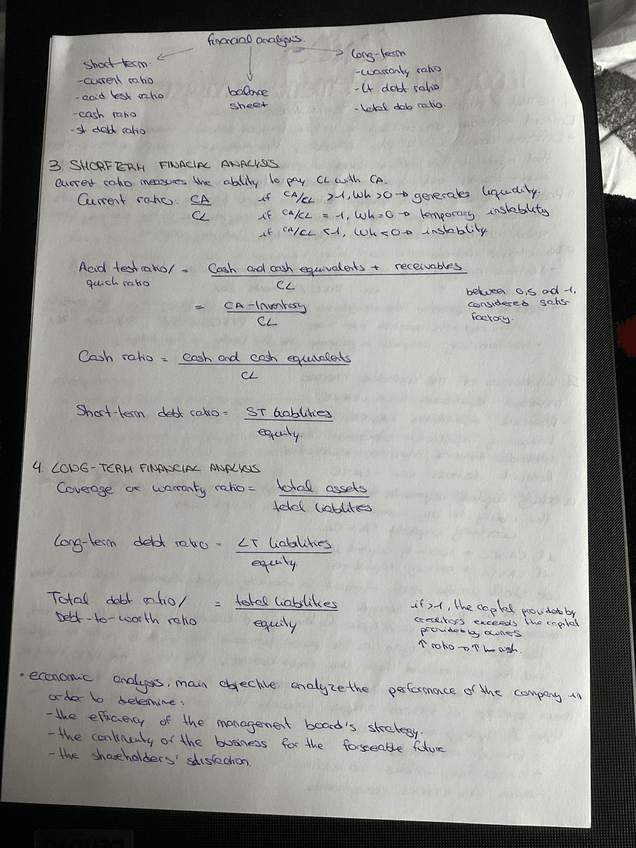 financial analysis
short-term
-current ratio
-acid test ratio
-cash ratio
-st debt ratio
balance
sheet
long-term
-warranty ratio
-Lt debt ratio
-total deb ratio.
3. SHORT TERM FINACIAL ANALYSIS
current ratio measures the ability to pay CL with CA.
Current ratio: CA
CL
if CA/CL >1, Wk >0 → generates liquidity.
if CA/CL = 1, Wk=0 → temporary instability
if CA/CL <1, Wk <0 → instability.
Acid test ratio/ = Cash and cash equivalents + receivables
quick ratio CL
= CA-Inventory
CL
between 0,5 and 1,
considered satis-
factory.
Cash ratio = cash and cash equivalents
CL
Short-term debt ratio = ST liabilities
equity.
4. LONG-TERM FINANCIAL ANALYSIS
Coverage or warranty ratio = total assets
total liabilities
Long-term debt ratio = LT liabilities
equity.
Total debt ratio/ = total liabilities
Debt-to-worth ratio equity
if >1, the capital provided by
creditors exceeds the capital
provided by owners
↑ ratio → ↑ risk.
• economic analysis, main objective: analyze the performance of the company in
order to determine:
-the efficiency of the management board's strategy.
-the continuity of the business for the forseeable future
-the shareholders' satisfaction